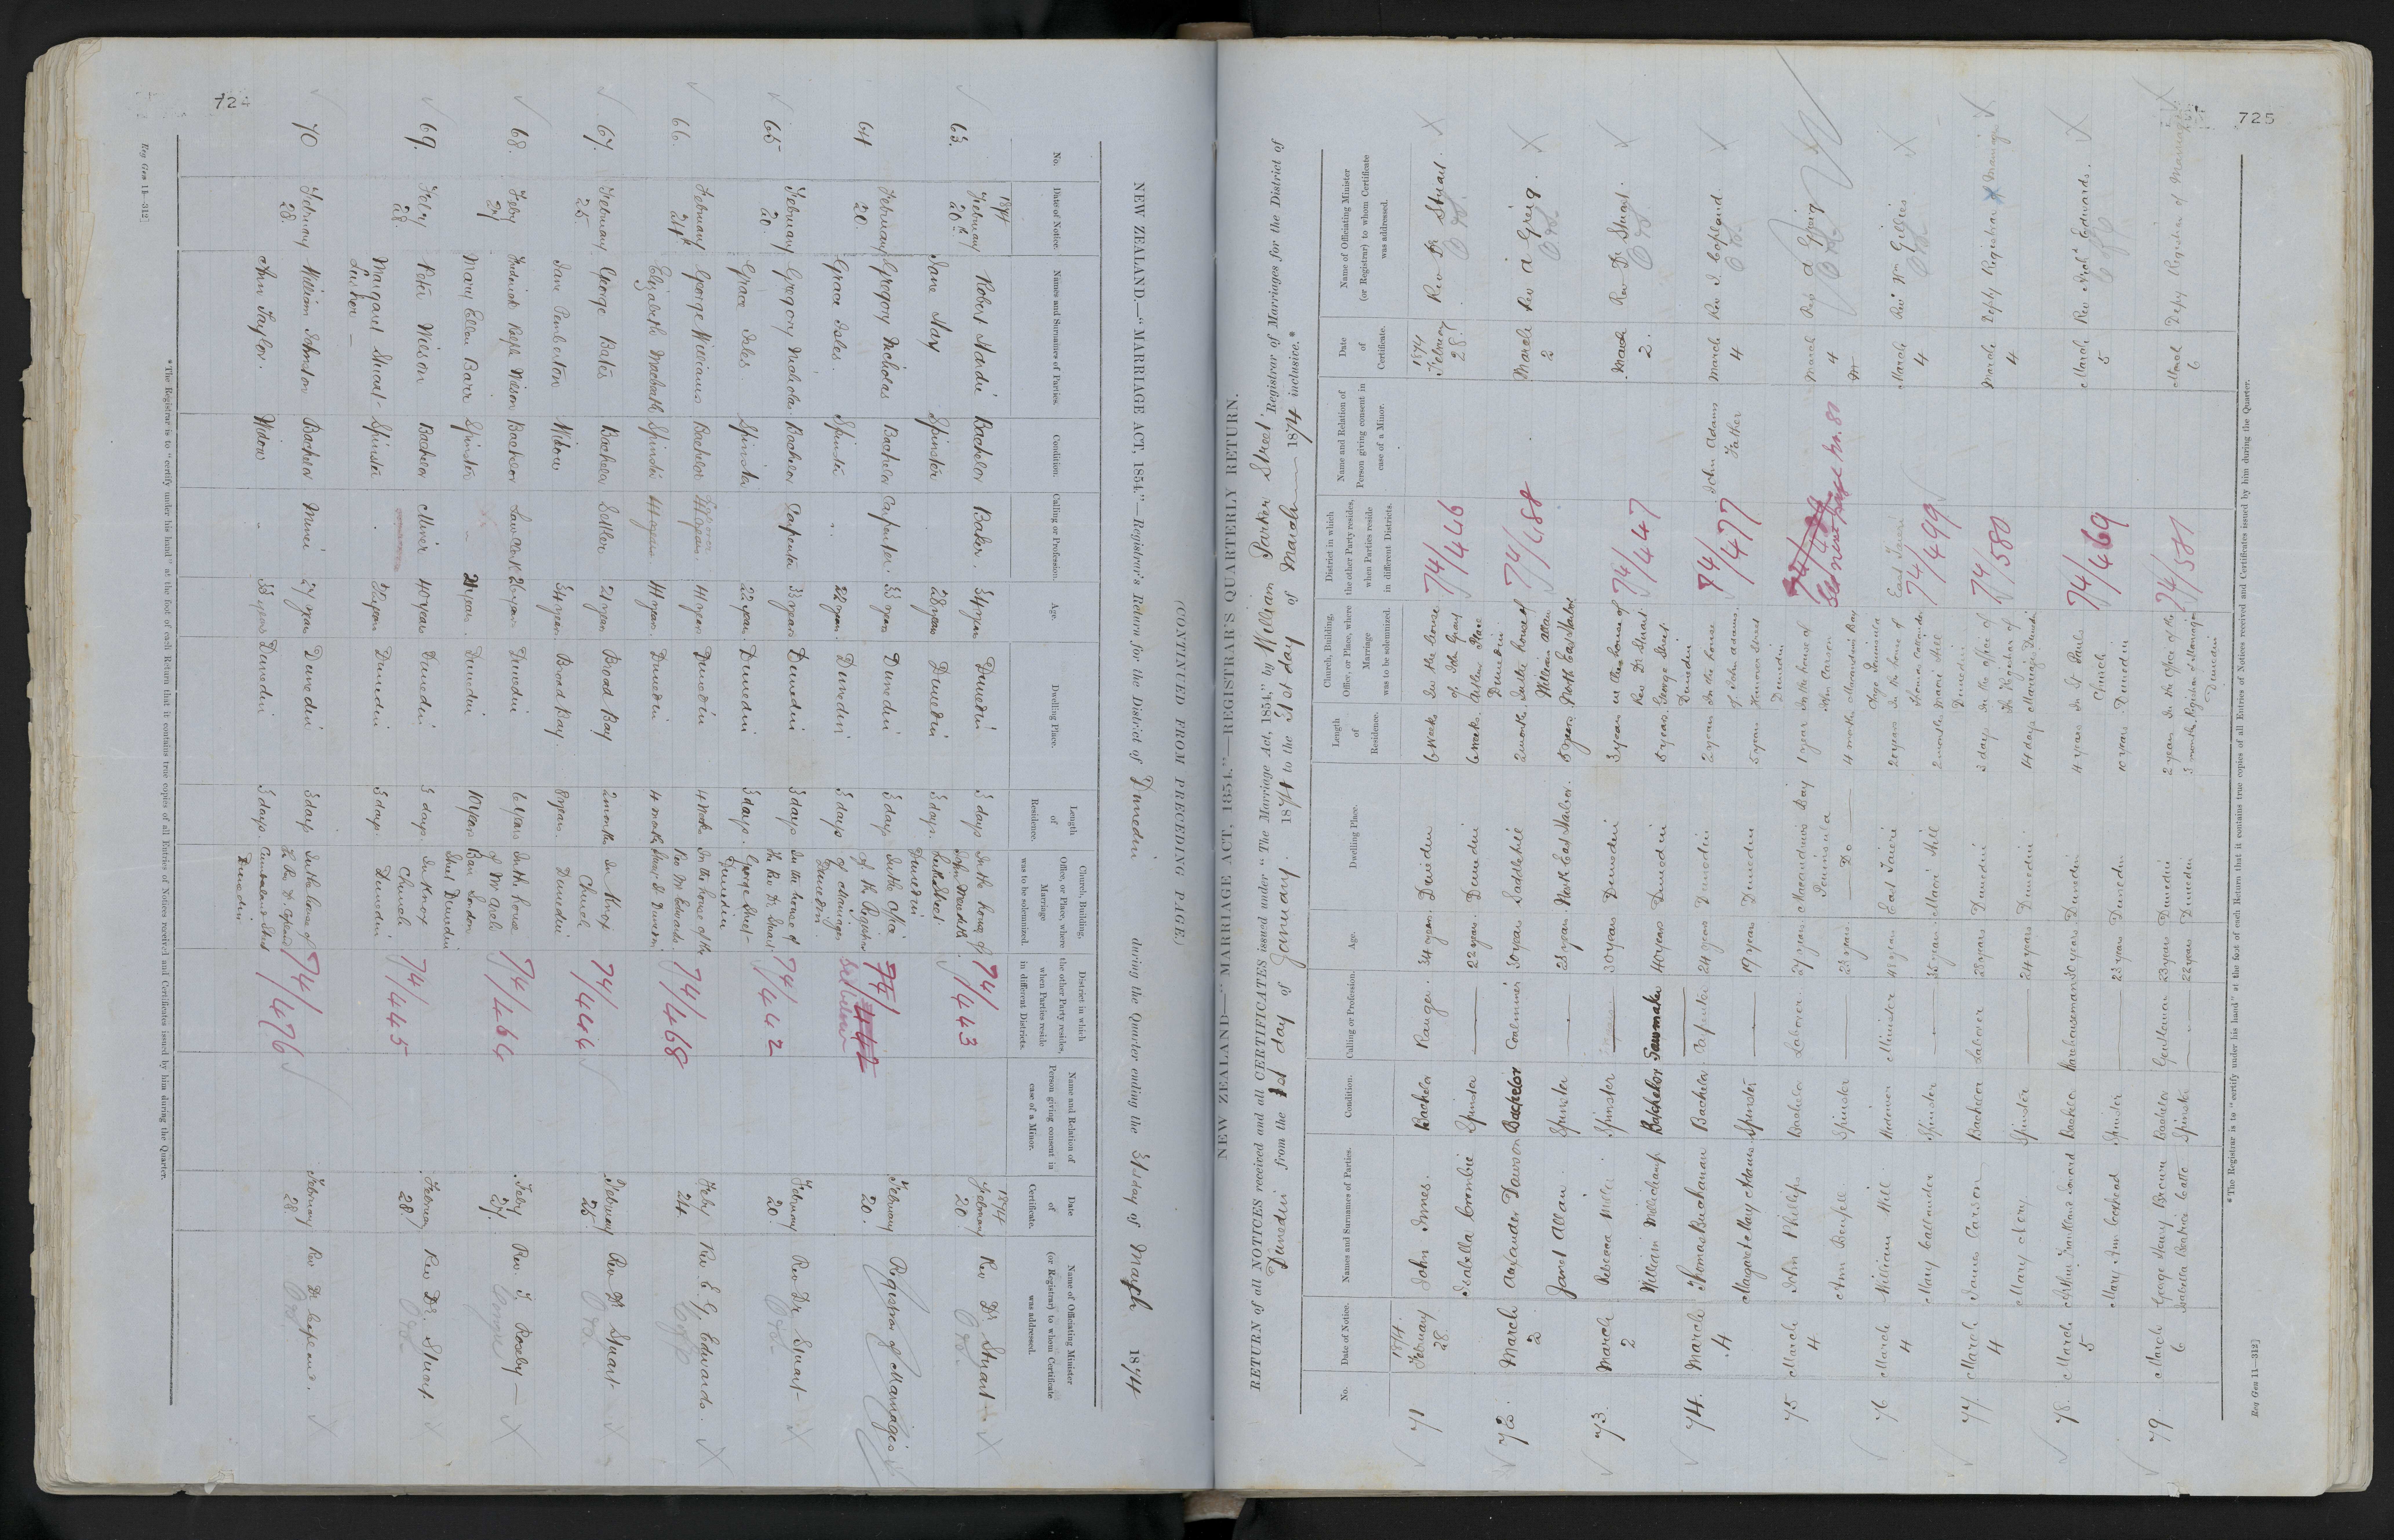 724
NEW ZEALAND.—"MARRIAGE ACT, 1854."—Registrar's Return for the District of Dunedin during the Quarter ending the 31st day of March 1874
(CONTINUED FROM PRECEDING PAGE.)
No.
Date of Notice.
Names and Surnames of Parties.
Condition.
Calling or Profession.
Age.
Dwelling Place.
Length of Residence.
Church, Building, Office, or Place, where Marriage was to be solemnized.
District in which the other Party resides, when Parties reside in different Districts.
Name and Relation of Person giving consent in case of a Minor.
Date of Certificate.
Name of Officiating Minister (or Registrar) to whom Certificate was addressed.
63. 1874 February 20th Robert Hardie Bachelor Baker 34 years Dunedin 3 days In the house of 74/443 1874 February 20. Rev Dr Stuart
Jane Hay Spinster 28 years Dunedin 3 days Dunedin
64 February 20. Gregory Nicholas Bachelor Carpenter 33 years Dunedin 3 days In the office of the Registrar of Marriages Dunedin 74/442 See below February 20. Registrar of Marriages
Grace Isles Spinster 22 years Dunedin 3 days
65 February 20. Gregory Nicholas Bachelor Carpenter 33 years Dunedin 3 days In the house of the Rev Dr Stuart George Street Dunedin 74/442 February 20 Rev Dr Stuart
Grace Isles Spinster 22 years Dunedin 3 days
66 February 24 George Williams Bachelor 44 years Dunedin 4 weeks In the house of the Rev Mr Edwards Dunedin 74/468 Feby 24 Rev E. G. Edwards
Elizabeth Macbeth Spinster 44 years Dunedin 4 months
67. February 25 George Bates Bachelor Settler 21 years Broad Bay 2 months In Knox Church Dunedin 74/444 February 25 Rev Dr Stuart
Jane Pemberton Widow 34 years Broad Bay 8 years
68. Feby 27 Frederick Ralph Nelson Bachelor Law Clerk 26 years Dunedin 6 years In the house of Mr 74/464 Feby 27. Rev. J. Roseby
Mary Ellen Barr Spinster 21 years Dunedin 10 years Dunedin
69. Feby 28. Peter Nielson Bachelor Miner 40 years Dunedin 3 days In Knox Church Dunedin 74/445 February 28 Rev Dr. Stuart
Margaret Stuart Spinster 32 years Dunedin 3 days
70 February 28. William Johnston Bachelor Miner 27 years Dunedin 3 days In the house of Cumberland Street Dunedin 74/476 February 28 Rev Dr Copland
Ann Taylor Widow 33 years Dunedin 3 days
*The Registrar is to "certify under his hand" at the foot of each Return that it contains true copies of all Entries of Notices received and Certificates issued by him during the Quarter.
Reg Gen 11—312]
725
NEW ZEALAND—"MARRIAGE ACT, 1854."—REGISTRAR'S QUARTERLY RETURN.
RETURN of all NOTICES received and all CERTIFICATES issued under "The Marriage Act, 1854," by William Parker Street Registrar of Marriages for the District of
Dunedin from the 1st day of January 1874 to the 31st day of March 1874 inclusive.*
No.
Date of Notice.
Names and Surnames of Parties.
Condition.
Calling or Profession.
Age.
Dwelling Place.
Length of Residence.
Church, Building, Office, or Place, where Marriage was to be solemnized.
District in which the other Party resides, when Parties reside in different Districts.
Name and Relation of Person giving consent in case of a Minor.
Date of Certificate.
Name of Officiating Minister (or Registrar) to whom Certificate was addressed.
71 1874. February 28. John Innes Bachelor Ranger 34 years Dunedin 6 weeks In the house of John Gray Dunedin 74/446 1874 February 28. Rev Dr Stuart
Isabella Crombie Spinster 22 years Dunedin 6 weeks
72. March 2 Alexander Dawson Bachelor Coalminer 30 years Saddlehill 2 months In the house of William Allan North East Harbor 74/488 March 2 Rev A Greig
Janet Allan Spinster 23 years North East Harbor 5 years
73. March 2 Rebecca Miller Spinster 30 years Dunedin 3 years In the house of Rev Dr Stuart George Street Dunedin 74/447 March 2. Rev Dr Stuart
William Millichamp Batchelor Sawmaker 40 years Dunedin 5 years
74. March 4 Thomas Buchanan Bachelor Carpenter 24 years Dunedin 2 years In the house of John Adams Hanover Street Dunedin 74/477 John Adams Father March 4 Rev J. Copland
Margaret May Adams Spinster 19 years Dunedin 5 years
75 March 4 John Phillips Bachelor Laborer 27 years Macandrews Bay Peninsula 1 year In the house of John Carson Macandrews Bay See next page No. 80 March 4 Rev A Greig
Ann Bonfell Spinster 23 years Do 4 months
76 March 4 William Will Widower Minister East Taieri 20 years In the house of Thomas Callander Maori Hill Dunedin East Taieri 74/499 March 4 Rev Wm Gillies
Mary Callander Spinster Maori Hill 2 months
77. March 4 James Carson Bachelor Laborer 23 years Dunedin 3 days In the office of the Registrar of Marriages Dunedin 74/580 March 4 Depty Registrar of Marriages
Mary Nery Spinster 24 years Dunedin 14 days
78. March 5 Bachelor Warehouseman 30 years Dunedin 4 years In St Pauls Church Dunedin 74/469 March 5 Rev Edwards
Mary Ann Lockhead Spinster 23 years Dunedin 10 years
79. March 6 George Henry Brown Bachelor Gentleman 23 years Dunedin 2 years In the office of the Registrar of Marriages Dunedin 74/581 March 6 Depty Registrar of Marriages
Isabella Beatrice Catto Spinster 22 years Dunedin 3 months
*The Registrar is to "certify under his hand" at the foot of each Return that it contains true copies of all Entries of Notices received and Certificates issued by him during the Quarter.
Reg Gen 11—312]